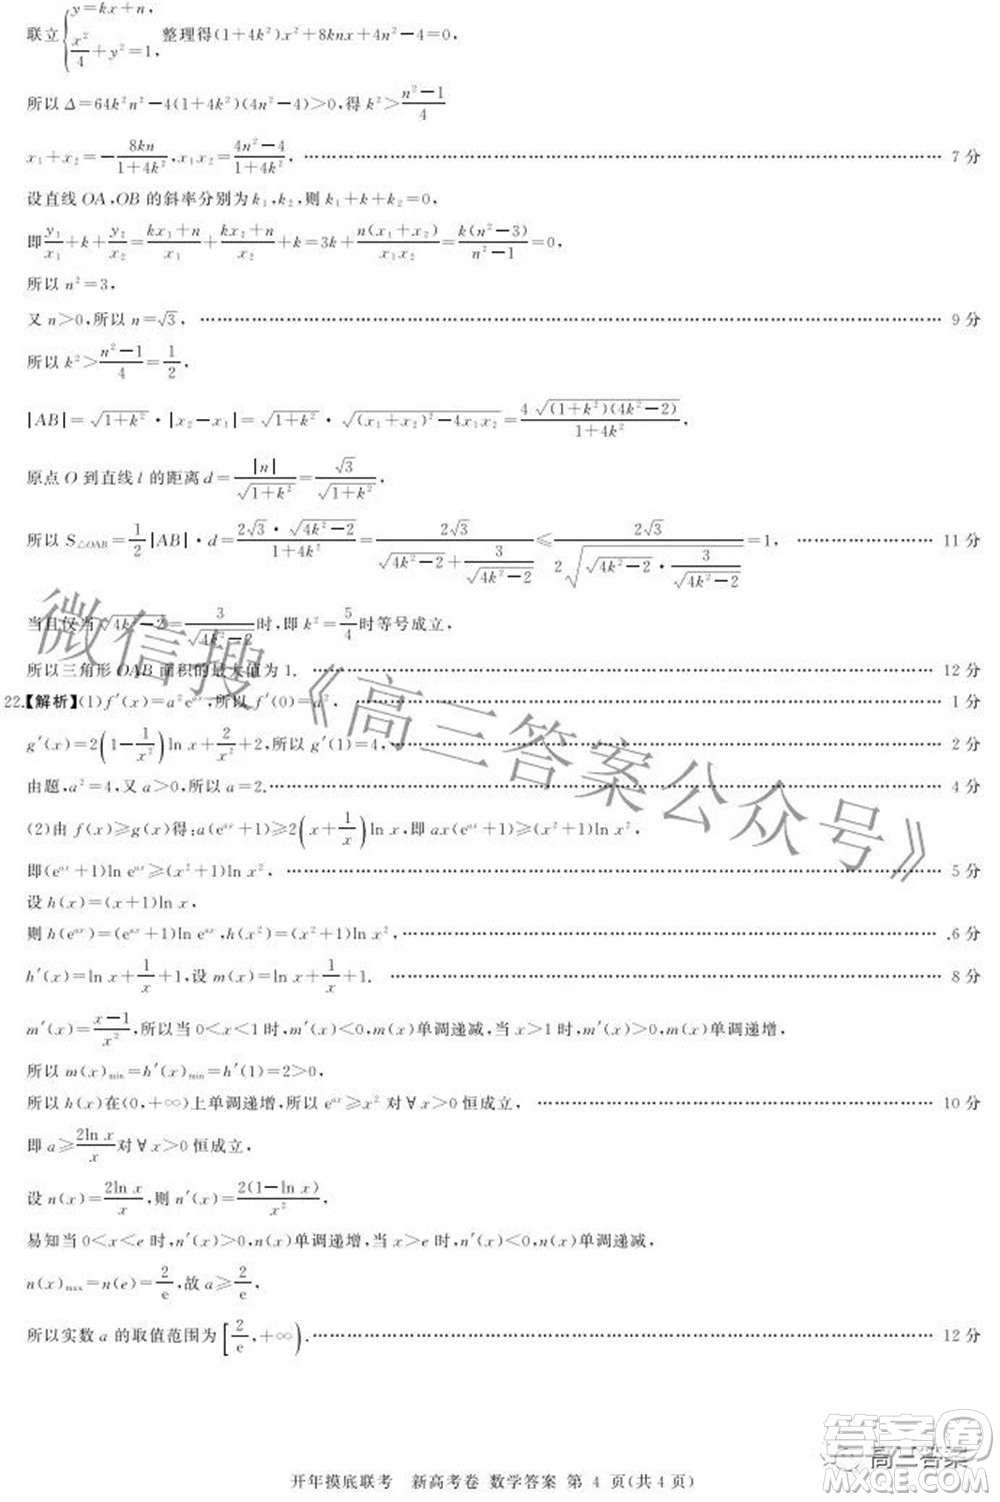 联立{y=kx+n, x²/4+y²=1, 整理得(1+4k²)x²+8knx+4n²-4=0,
所以 Δ=64k²n²-4(1+4k²)(4n²-4)>0,得 k²>(n²-1)/4
x₁+x₂=-8kn/(1+4k²),x₁x₂=(4n²-4)/(1+4k²), …… 7 分
设直线 OA,OB 的斜率分别为 k₁,k₂,则 k₁+k+k₂=0,
即 y₁/x₁+k+y₂/x₂=(kx₁+n)/x₁+(kx₂+n)/x₂+k=3k+n(x₁+x₂)/(x₁x₂)=k(n²-3)/(n²-1)=0,
所以 n²=3,
又 n>0,所以 n=√3, …… 9 分
所以 k²>(n²-1)/4=1/2,
|AB|=√(1+k²)·|x₂-x₁|=√(1+k²)·√((x₁+x₂)²-4x₁x₂)=4√((1+k²)(4k²-2))/(1+4k²),
原点 O 到直线 l 的距离 d=|n|/√(1+k²)=√3/√(1+k²),
所以 S△OAB=1/2|AB|·d=2√3·√(4k²-2)/(1+4k²)=2√3/(√(4k²-2)+3/√(4k²-2))≤2√3/(2√(√(4k²-2)·3/√(4k²-2)))=1, …… 11 分
当且仅当√(4k²-2)=3/√(4k²-2)时,即 k²=5/4时等号成立,
所以三角形 OAB 面积的最大值为 1. …… 12 分
22.【解析】(1)f′(x)=a²e^(ax),所以 f′(0)=a², …… 1 分
g′(x)=2(1-1/x²)ln x+2/x²+2,所以 g′(1)=4, …… 2 分
由题,a²=4,又 a>0,所以 a=2. …… 4 分
(2)由 f(x)≥g(x)得:a(e^(ax)+1)≥2(x+1/x)ln x,即 ax(e^(ax)+1)≥(x²+1)ln x²,
即(e^(ax)+1)ln e^(ax)≥(x²+1)ln x², …… 5 分
设 h(x)=(x+1)ln x,
则 h(e^(ax))=(e^(ax)+1)ln e^(ax),h(x²)=(x²+1)ln x², …… .6 分
h′(x)=ln x+1/x+1,设 m(x)=ln x+1/x+1. …… 8 分
m′(x)=(x-1)/x²,所以当 0<x<1 时,m′(x)<0,m(x)单调递减,当 x>1 时,m′(x)>0,m(x)单调递增,
所以 m(x)min=h′(x)min=h′(1)=2>0,
所以 h(x)在(0,+∞)上单调递增,所以 e^(ax)≥x² 对∀x>0 恒成立, …… 10 分
即 a≥2ln x/x对∀x>0 恒成立,
设 n(x)=2ln x/x,则 n′(x)=2(1-ln x)/x²,
易知当 0<x<e 时,n′(x)>0,n(x)单调递增,当 x>e 时,n′(x)<0,n(x)单调递减,
n(x)max=n(e)=2/e,故 a≥2/e,
所以实数 a 的取值范围为[2/e,+∞). …… 12 分
微信搜《高三答案公众号》
答案圈
高三答案
MXQE.COM
开年摸底联考 新高考卷 数学答案 第 4 页(共 4 页)